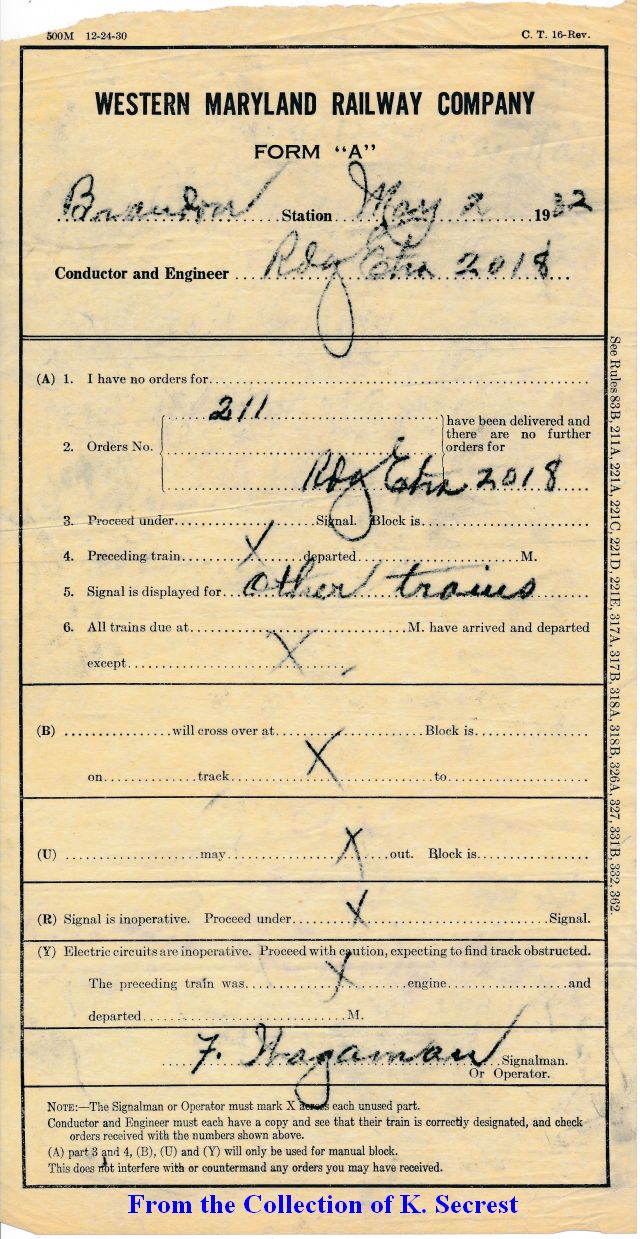 500M 12-24-30 C. T. 16-Rev.
WESTERN MARYLAND RAILWAY COMPANY
FORM "A"
Brandon Station May 2 1932
Conductor and Engineer Rdg Extra 2018
(A) 1. I have no orders for
211
2. Orders No. have been delivered and there are no further orders for
Rdg Extra 2018
3. Proceed under Signal. Block is
4. Preceding train X departed M.
5. Signal is displayed for other trains
6. All trains due at M. have arrived and departed
except X
(B) will cross over at Block is
on track X to
(U) may X out. Block is
(R) Signal is inoperative. Proceed under X Signal.
(Y) Electric circuits are inoperative. Proceed with caution, expecting to find track obstructed.
The preceding train was X engine and
departed M.
F. Wagaman Signalman.
Or Operator.
NOTE:—The Signalman or Operator must mark X across each unused part.
Conductor and Engineer must each have a copy and see that their train is correctly designated, and check
orders received with the numbers shown above.
(A) part 3 and 4, (B), (U) and (Y) will only be used for manual block.
This does not interfere with or countermand any orders you may have received.
See Rules 83B, 211A, 221A, 221C, 221D, 221E, 317A, 317B, 318A, 318B, 326A, 327, 331B, 332, 362.
From the Collection of K. Secrest